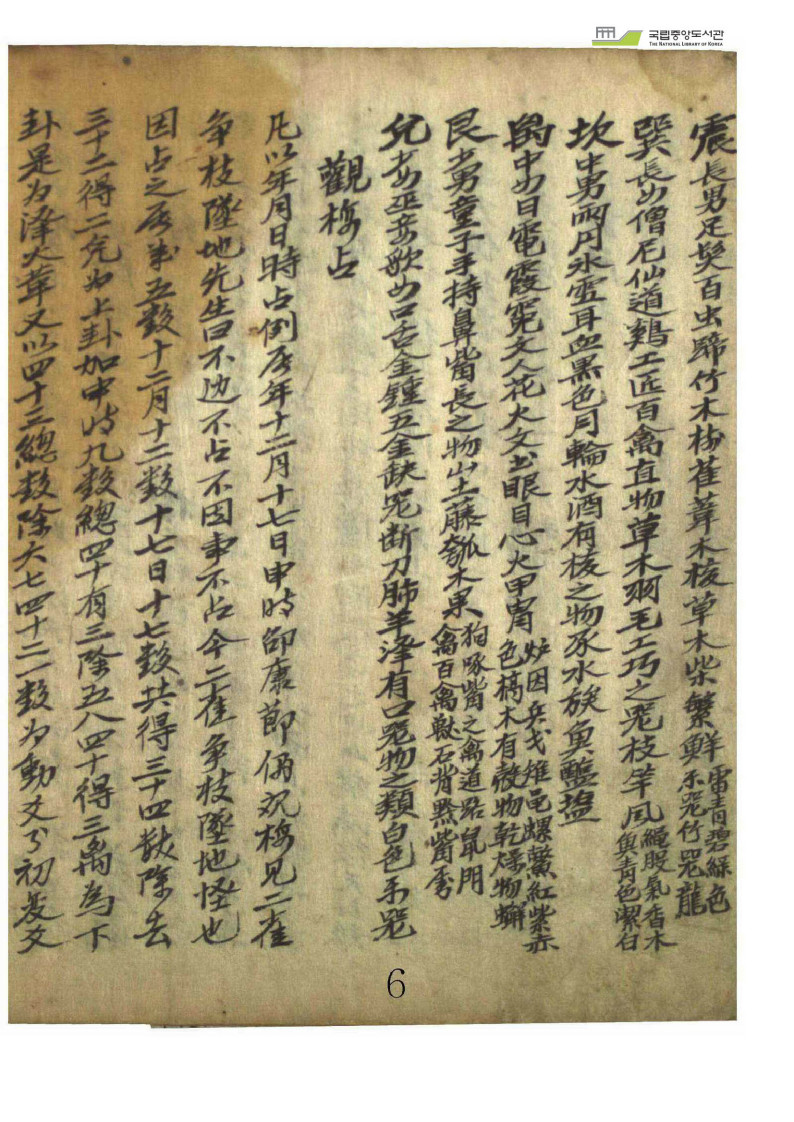 국립중앙도서관
THE NATIONAL LIBRARY OF KOREA
震長男足髮百虫蹄竹木梅萑葦木核草木柴繁鮮
雷青碧綠色
禾器竹器龍
巽長女僧尼仙道鷄工匠百禽直物草木羽毛工巧之器枝竿風
繩股氣香木
臭青色潔白
坎中男雨月氷雪耳血黑色月輪水酒有核之物豕水族魚鹽
离中女日電霞霓文人花火文書眼目心火甲冑
炉因兵戈雉黾螺鱉紅紫赤
色槁木有殼物乾燥物
艮少男童子手持鼻嘴長之物山土藤瓠木果
狗啄嘴之禽道路鼠門
禽百禽獸石背黔嘴
兌少女巫妾歌女口舌金鍾五金缺器斷刀肺羊澤有口器物之類白色
觀梅占
凡以年月日時占例辰年十二月十七日申時邵康節偶觀梅見二雀
爭枝墜地先生曰不動不占不因事不占今二雀爭枝墜地怪也
因占之辰年五数十二月十二数十七日十七数共得三十四数除去
三十二得二兌为上卦加申时九数總四十有三除五八四十得三离為下
卦是为澤火革又以四十三總数除六七四十二一数为動爻乃初爻